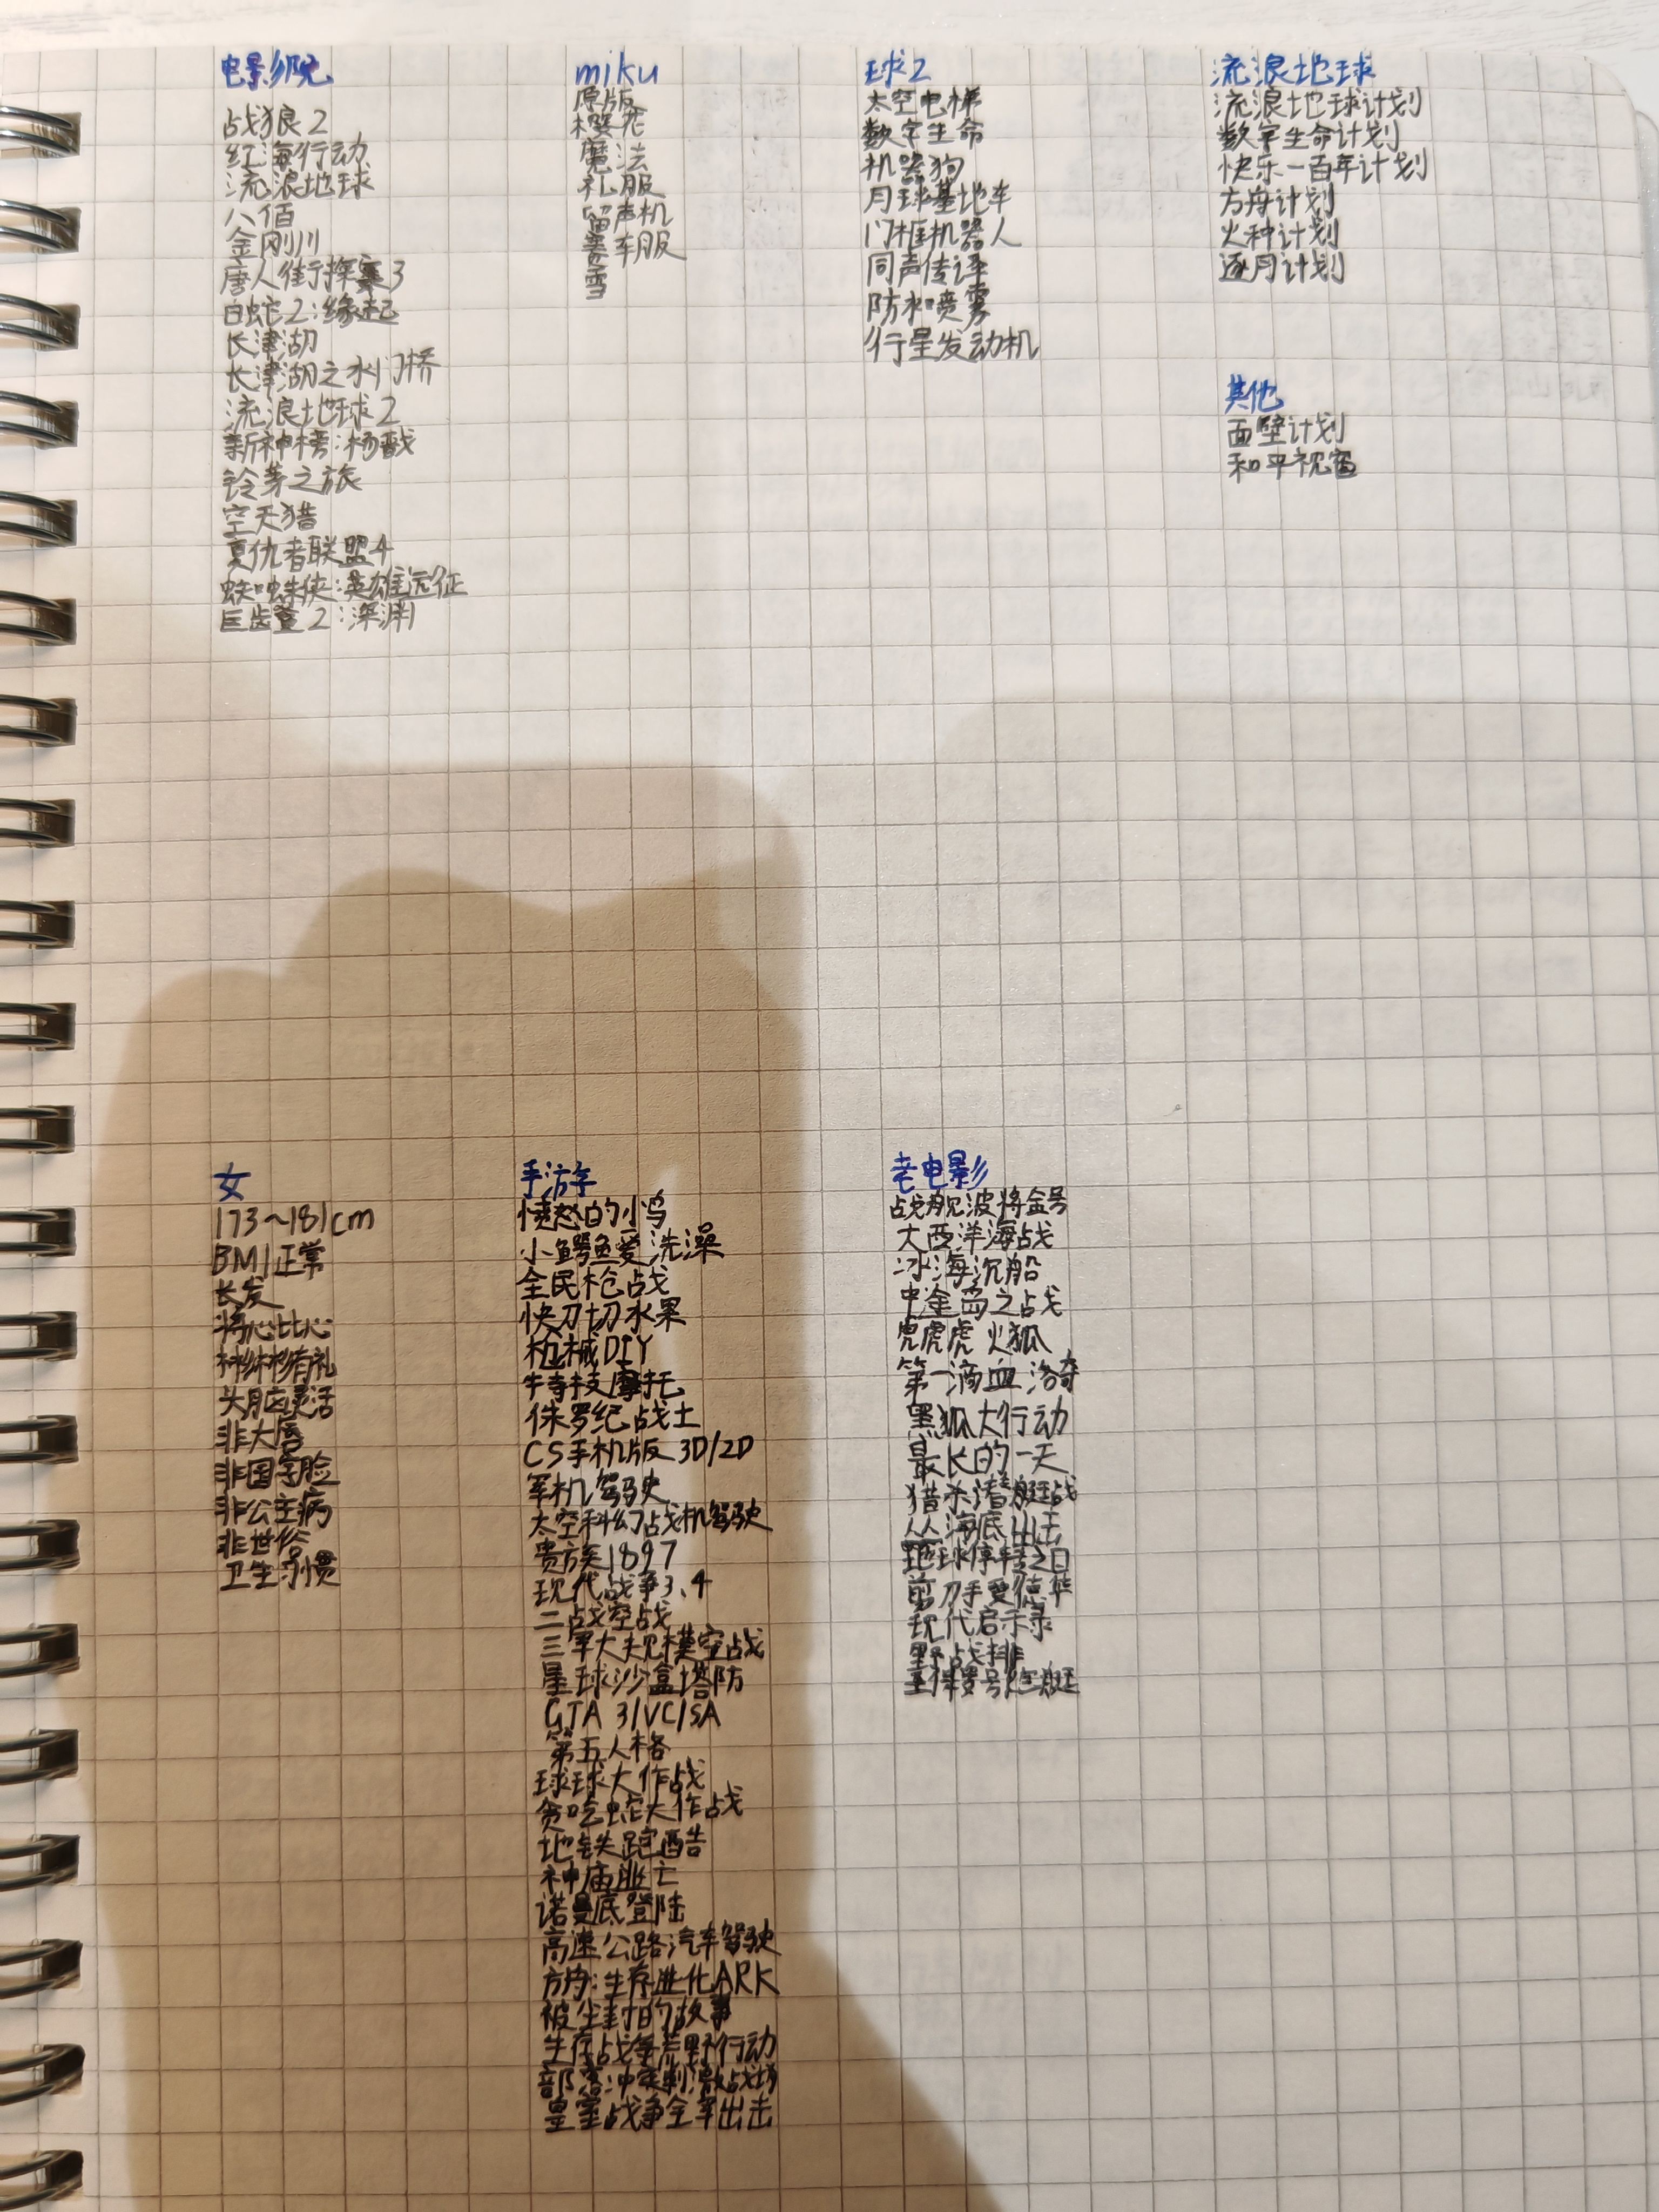 电影院
战狼2
红海行动
流浪地球
八佰
金刚川
唐人街探案3
白蛇2:缘起
长津湖
长津湖之水门桥
流浪地球2
新神榜:杨戬
铃芽之旅
空天猎
复仇者联盟4
蜘蛛侠:英雄远征
巨齿鲨2:深渊
miku
原版
樱花
魔法
礼服
留声机
赛车服
雪
球2
太空电梯
数字生命
机器狗
月球基地车
门框机器人
同声传译
防水喷雾
行星发动机
流浪地球
流浪地球计划
数字生命计划
快乐一百年计划
方舟计划
火种计划
逐月计划
其他
面壁计划
和平视窗
女
173~181cm
BMI正常
长发
将心比心
彬彬有礼
头脑灵活
非大唇
非国字脸
非公主病
非世俗
卫生习惯
手游
愤怒的小鸟
小鳄鱼爱洗澡
全民枪战
快刀切水果
枪械DIY
特技摩托
侏罗纪战士
CS手机版 3D/2D
军机驾驶
太空科幻战机驾驶
贵族1897
现代战争3、4
二战空战
三军大规模空战
星球沙盒塔防
GTA 3/VC/SA
第五人格
球球大作战
贪吃蛇大作战
地铁跑酷
神庙逃亡
诺曼底登陆
高速公路汽车驾驶
方舟:生存进化ARK
被尘封的故事
生存战争荒野行动
部落冲突刺激战场
皇室战争全军出击
老电影
战舰波将金号
大西洋海战
冰海沉船
中途岛之战
虎虎虎 火狐
第一滴血 洛奇
黑狐大行动
最长的一天
猎杀潜艇战
从海底出击
地球停转之日
剪刀手爱德华
现代启示录
野战排
圣保罗号炮艇